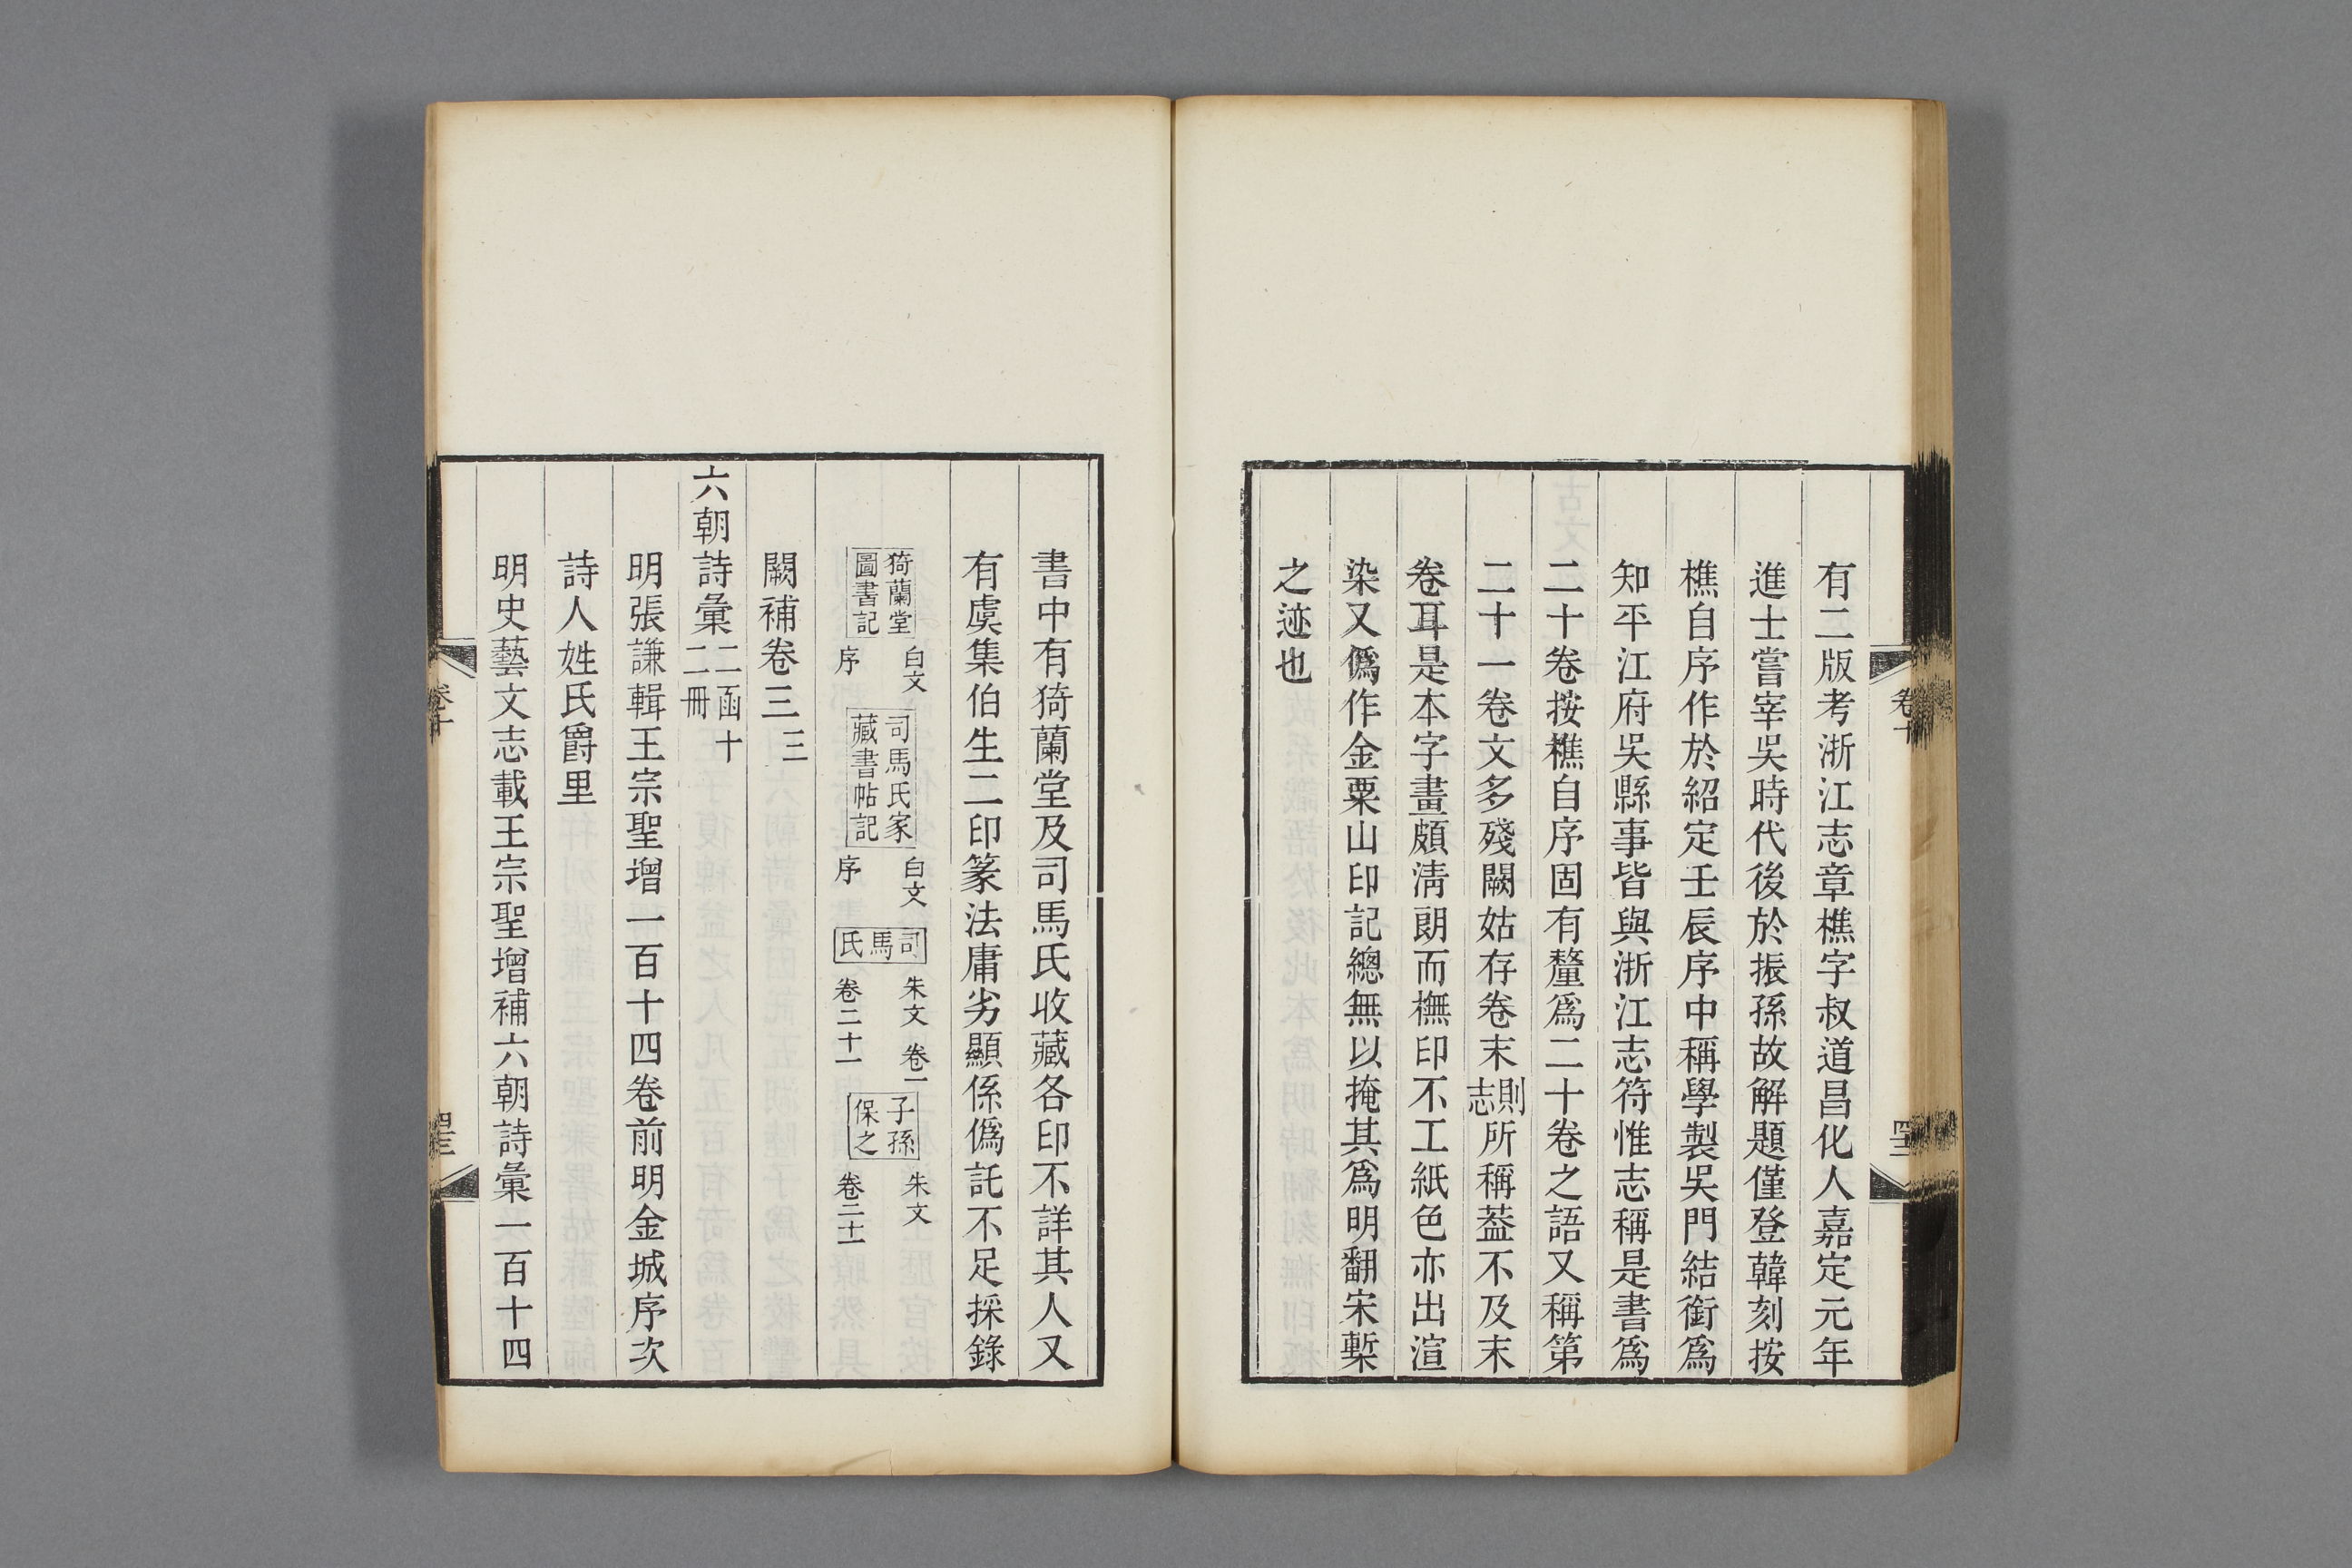 有二版考浙江志章樵字叔道昌化人嘉定元年
進士嘗宰吳時代後於振孫故解題僅登韓刻按
樵自序作於紹定壬辰序中稱學製吳門結銜爲
知平江府吳縣事皆與浙江志符惟志稱是書爲
二十卷按樵自序固有釐爲二十卷之語又稱第
二十一卷文多殘闕姑存卷末則志所稱葢不及末
卷耳是本字畫頗淸朗而橅印不工紙色亦出渲
染又僞作金粟山印記總無以掩其爲明翻宋槧
之迹也
書中有猗蘭堂及司馬氏收藏各印不詳其人又
有虞集伯生二印篆法庸劣顯係僞託不足採錄
猗蘭堂圖書記 白文 序 司馬氏家藏書帖記 白文 序 司馬氏 朱文 卷一 卷二十一 子孫保之 朱文 卷二十一
闕補卷三 三
六朝詩彙 二函十二冊
明張謙輯王宗聖增一百十四卷前明金城序次
詩人姓氏爵里
明史藝文志載王宗聖增補六朝詩彙一百十四
卷十